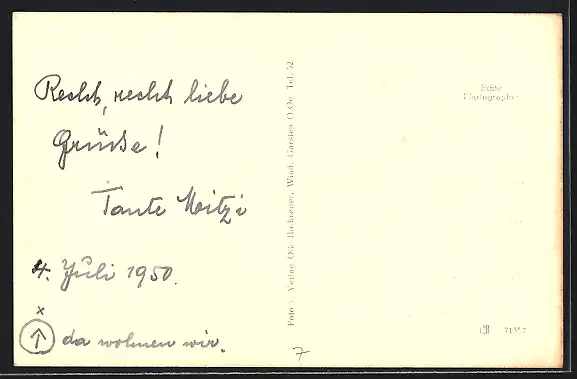 Recht, recht liebe
Grüsse!
Tante Mitzi
4. Juli 1950.
x
↑ da wohnen wir.
7
Foto u. Verlag Otto Windf. Garsten O.Oe Tel. 52
Echte
Photographie
71357